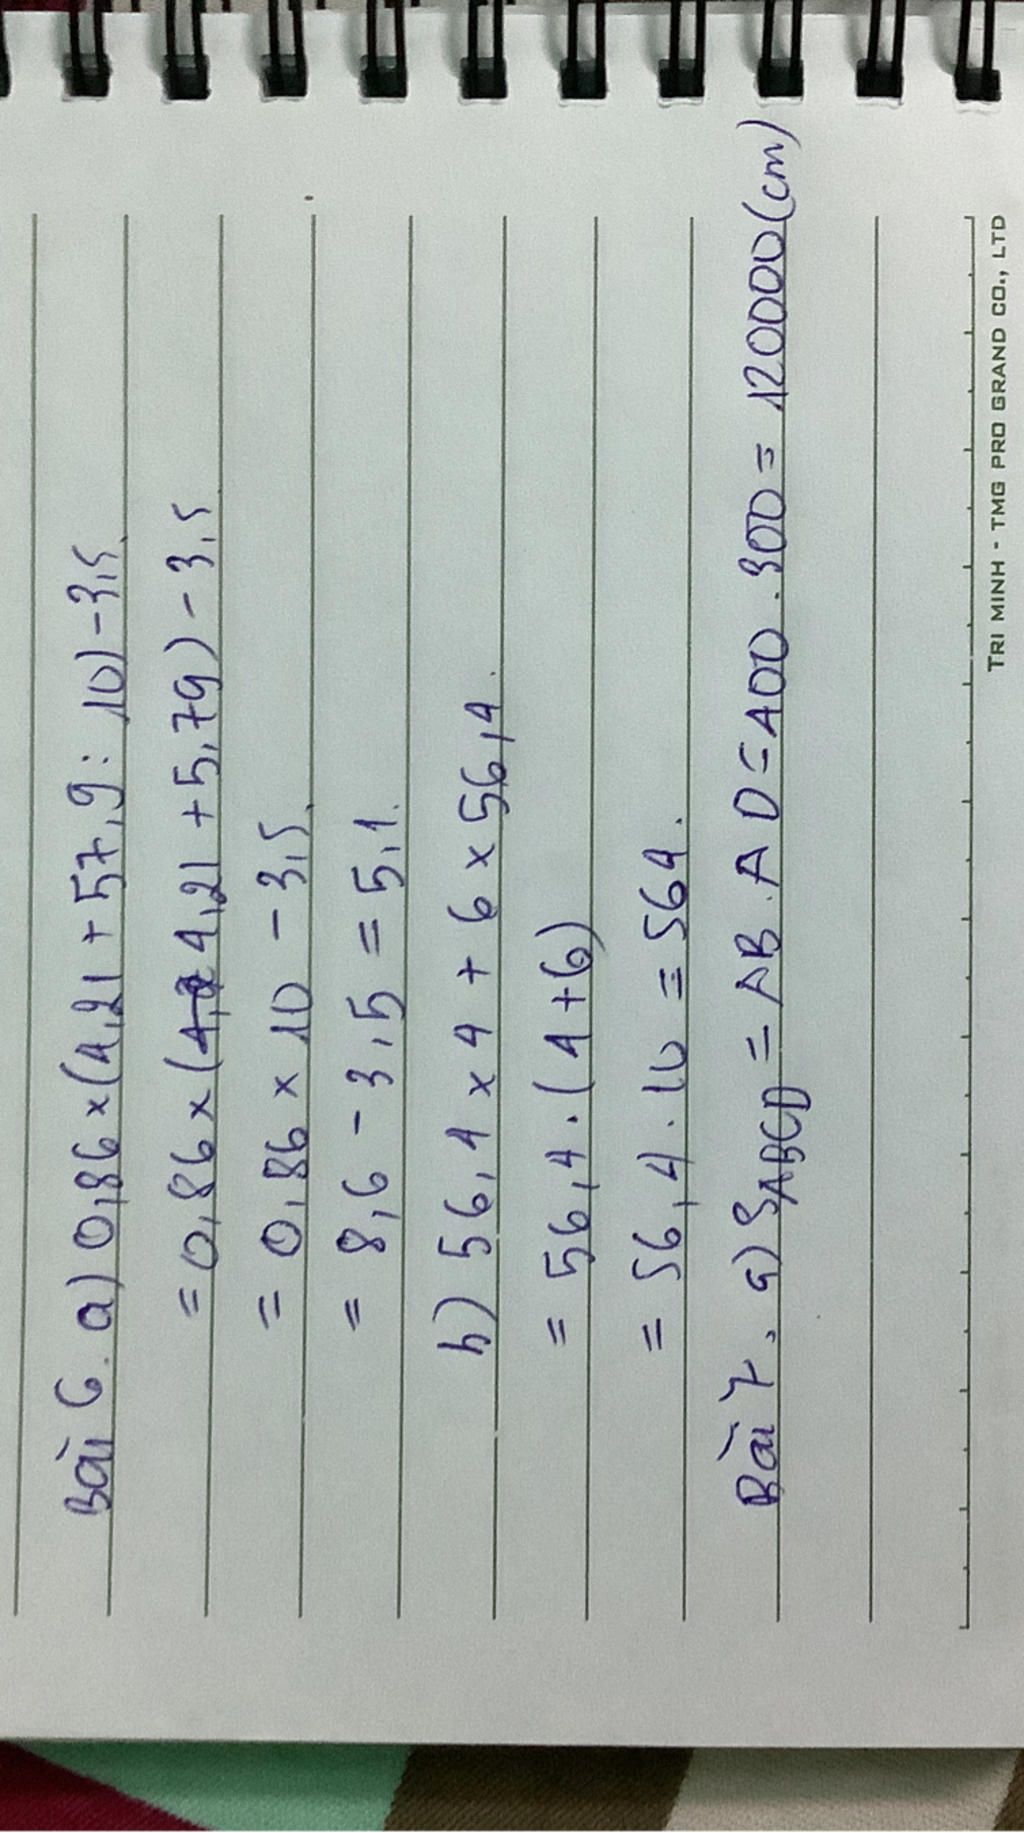 Bài 6. a) 0,86 x (4,21 + 57,9 : 10) - 3,5
= 0,86 x (4,21 + 5,79) - 3,5
= 0,86 x 10 - 3,5
= 8,6 - 3,5 = 5,1.
b) 56,4 x 4 + 6 x 56,4.
= 56,4 . (4+6)
= 56,4 . 10 = 564.
Bài 7. a) SABCD = AB . AD = 400 . 300 = 120000 (cm)
TRI MINH - TMG PRO GRAND CO., LTD